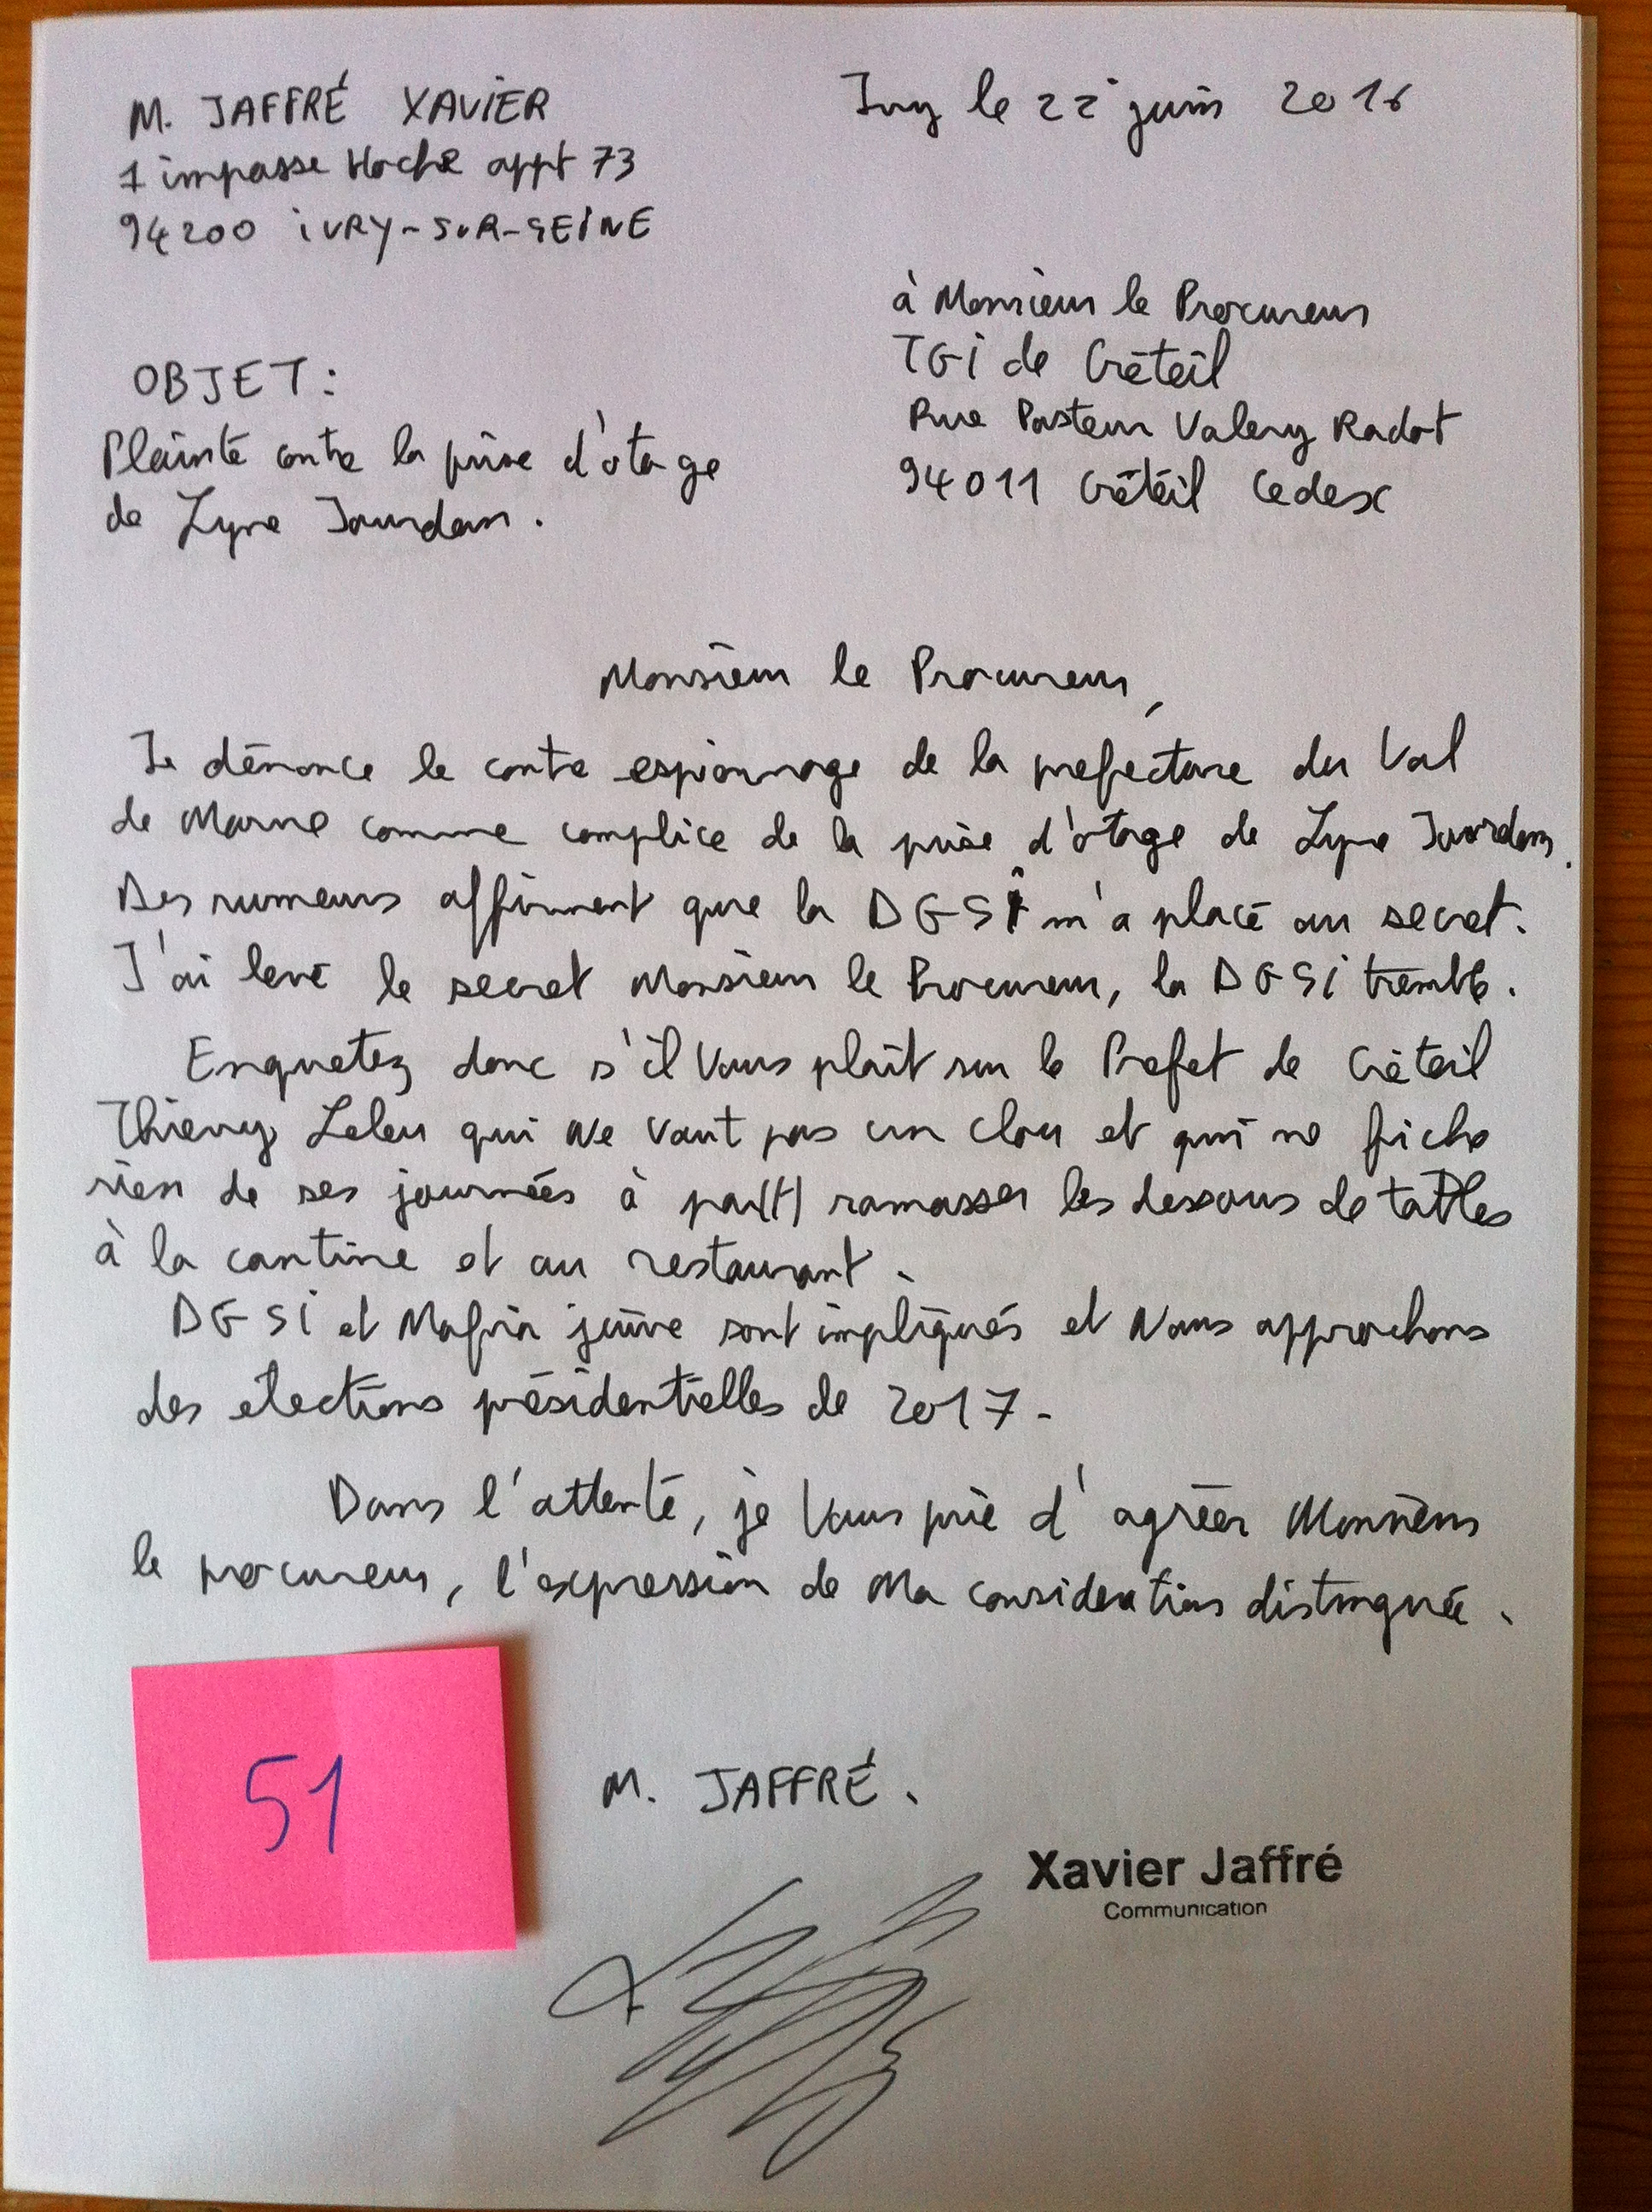 M. JAFFRÉ XAVIER
1 impasse Hoche appt 73
94200 iVRY-SUR-SEINE
Ivry le 22 juin 2016
à Monsieur le Procureur
TGi de Créteil
Rue Pasteur Valery Radot
94011 Créteil Cedex
OBJET:
Plainte contre la prise d'otage
de Lyne Jourdan.
Monsieur le Procureur,
Je dénonce le contre espionnage de la prefecture du Val
de Marne comme complice de la prise d'otage de Lyne Jourdan.
Des rumeurs affirment que la DGSi m'a placé au secret.
J'ai levé le secret Monsieur le Procureur, la DGSi tremble.
Enquetez donc s'il vous plait sur le Prefet de Créteil
Thierry Leleu qui ne vaut pas un clou et qui ne fiche
rien de ses journées à part ramasser les dessous de tables
à la cantine et au restaurant.
DGSi et Mafia juive sont impliqués et Nous approchons
des élections présidentielles de 2017.
Dans l'attente, je vous prie d'agréer Monsieur
le procureur, l'expression de Ma considération distinguée.
51
M. JAFFRÉ.
Xavier Jaffré
Communication